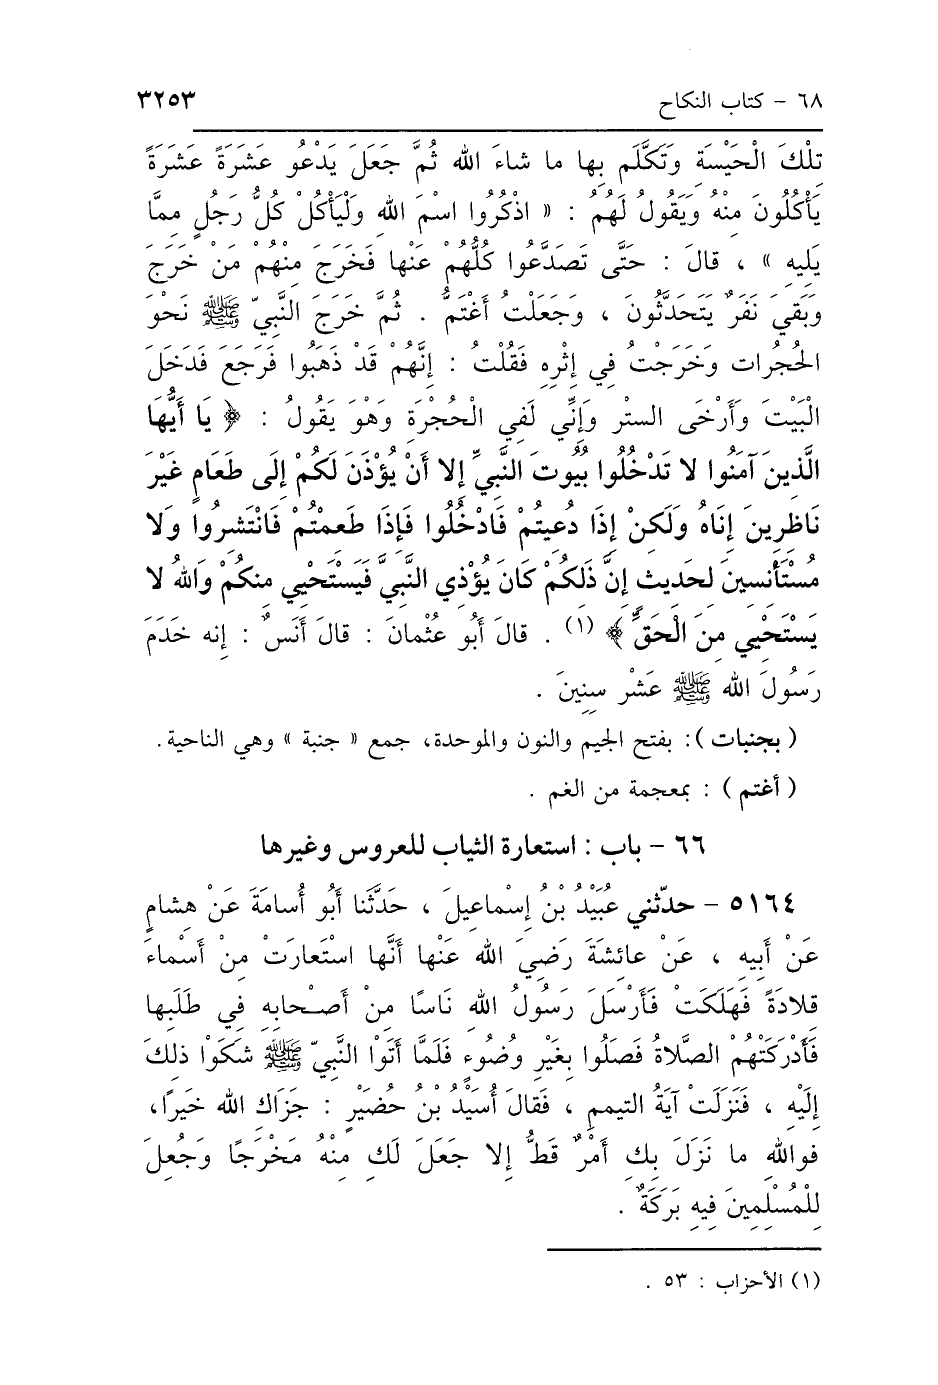 ٦٨ - كتاب النكاح ٣٢٥٣
تِلْكَ الْحَيْسَةِ وَتَكَلَّمَ بِها ما شاءَ الله ثُمَّ جَعَلَ يَدْعُو عَشَرَةً عَشَرَةً
يَأْكُلُونَ مِنْهُ وَيَقُولُ لَهُمُ : « اذْكُرُوا اسْمَ اللهِ وَلْيَأْكُلْ كُلُّ رَجُلٍ مِمَّا
يَلِيهِ » ، قالَ : حَتَّى تَصَدَّعُوا كُلُّهُمْ عَنْها فَخَرَجَ مِنْهُمْ مَنْ خَرَجَ
وَبَقِيَ نَفَرٌ يَتَحَدَّثُونَ ، وَجَعَلْتُ أَغْتَمُّ . ثُمَّ خَرَجَ النَّبِيّ ﷺ نَحْوَ
الحُجُرات وَخَرَجْتُ فِي إِثْرِهِ فَقُلْتُ : إِنَّهُمْ قَدْ ذَهَبُوا فَرَجَعَ فَدَخَلَ
الْبَيْتَ وَأَرْخَى السِتْر وَإِنِّي لَفِي الْحُجْرَةِ وَهْوَ يَقُولُ : ﴿ يَا أَيُّهَا
الَّذِينَ آمَنُوا لا تَدْخُلُوا بُيُوتَ النَّبِيِّ إِلا أَنْ يُؤْذَنَ لَكُمْ إِلَى طَعَامٍ غَيْرَ
نَاظِرِينَ إِنَاهُ وَلَكِنْ إِذَا دُعِيتُمْ فَادْخُلُوا فَإِذَا طَعِمْتُمْ فَانْتَشِرُوا وَلا
مُسْتَأْنِسِينَ لِحَدِيثٍ إِنَّ ذَلِكُمْ كَانَ يُؤْذِي النَّبِيَّ فَيَسْتَحْيِي مِنكُمْ وَاللهُ لا
يَسْتَحْيِي مِنَ الْحَقِّ ﴾ (١) . قالَ أَبُو عُثْمانَ : قالَ أَنَسٌ : إنه خَدَمَ
رَسُولَ الله ﷺ عَشْر سِنِينَ .
( بجنبات ): بفتح الجيم والنون والموحدة، جمع « جنبة » وهي الناحية.
( أغتم ) : بمعجمة من الغم .
٦٦ - باب : استعارة الثياب للعروس وغيرها
٥١٦٤ - حدّثني عُبَيْدُ بْنُ إِسْماعِيلَ ، حَدَّثَنا أَبُو أُسامَةَ عَنْ هِشامٍ
عَنْ أَبِيهِ ، عَنْ عائِشَةَ رَضِيَ الله عَنْها أَنَّها اسْتَعارَتْ مِنْ أَسْماءَ
قِلادَةً فَهَلَكَتْ فَأَرْسَلَ رَسُولُ الله نَاسًا مِنْ أَصْحابِهِ فِي طَلَبِها
فَأَدْرَكَتْهُمُ الصَّلاةُ فَصَلَوا بِغَيْرِ وُضُوءٍ فَلَمَّا أَتَوْا النَّبِيّ ﷺ شَكَوْا ذلِكَ
إِلَيْهِ ، فَنَزَلَتْ آيَةُ التيمم ، فَقالَ أُسَيْدُ بْنُ حُضَيْرٍ : جَزَاكِ الله خَيرًا،
فواللهِ ما نَزَلَ بِكِ أَمْرٌ قَطُّ إِلا جَعَلَ لَكِ مِنْهُ مَخْرَجًا وَجُعِلَ
لِلْمُسْلِمِينَ فِيهِ بَرَكَةٌ .
(١) الأحزاب : ٥٣ .